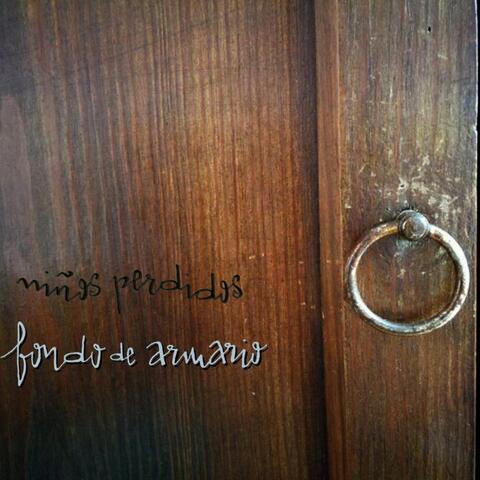 niños perdidos
fondo de armario